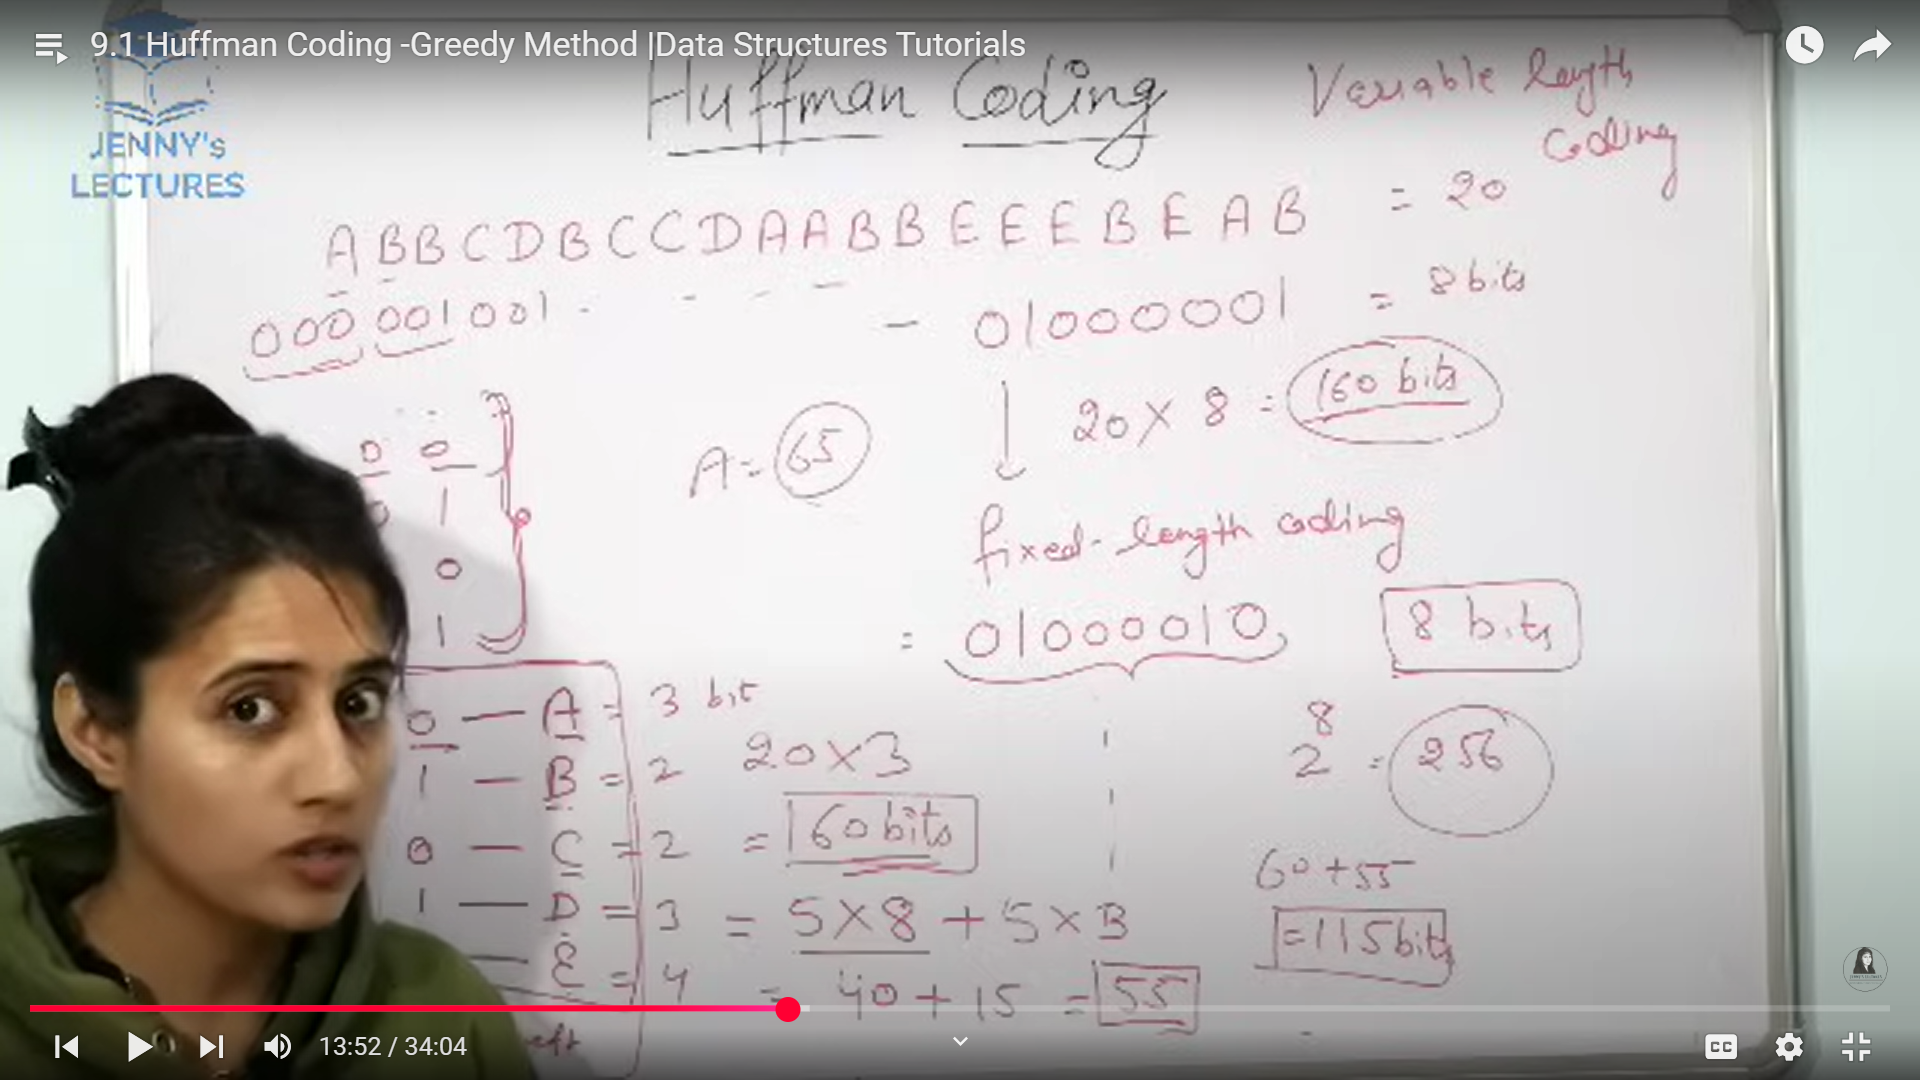 9.1 Huffman Coding -Greedy Method |Data Structures Tutorials
JENNY's
LECTURES
Huffman Coding
Variable length
coding
ABBCDBCCDAABBEEEBEAB = 20
000 001 001 - - - - - 01000001 = 8 bits
20 X 8 = 160 bits
A = 65
0 0
0 1
0
1
fixed-length coding
= 01000010, 8 bits
0 — A = 3 bit
1 — B = 2
0 — C = 2
1 — D = 3
— E = 4
20 X 3
= 60 bits
= 5 X 8 + 5 X 3
= 40 + 15 = 55
2^8 = 256
60 + 55
= 115 bits
13:52 / 34:04
CC